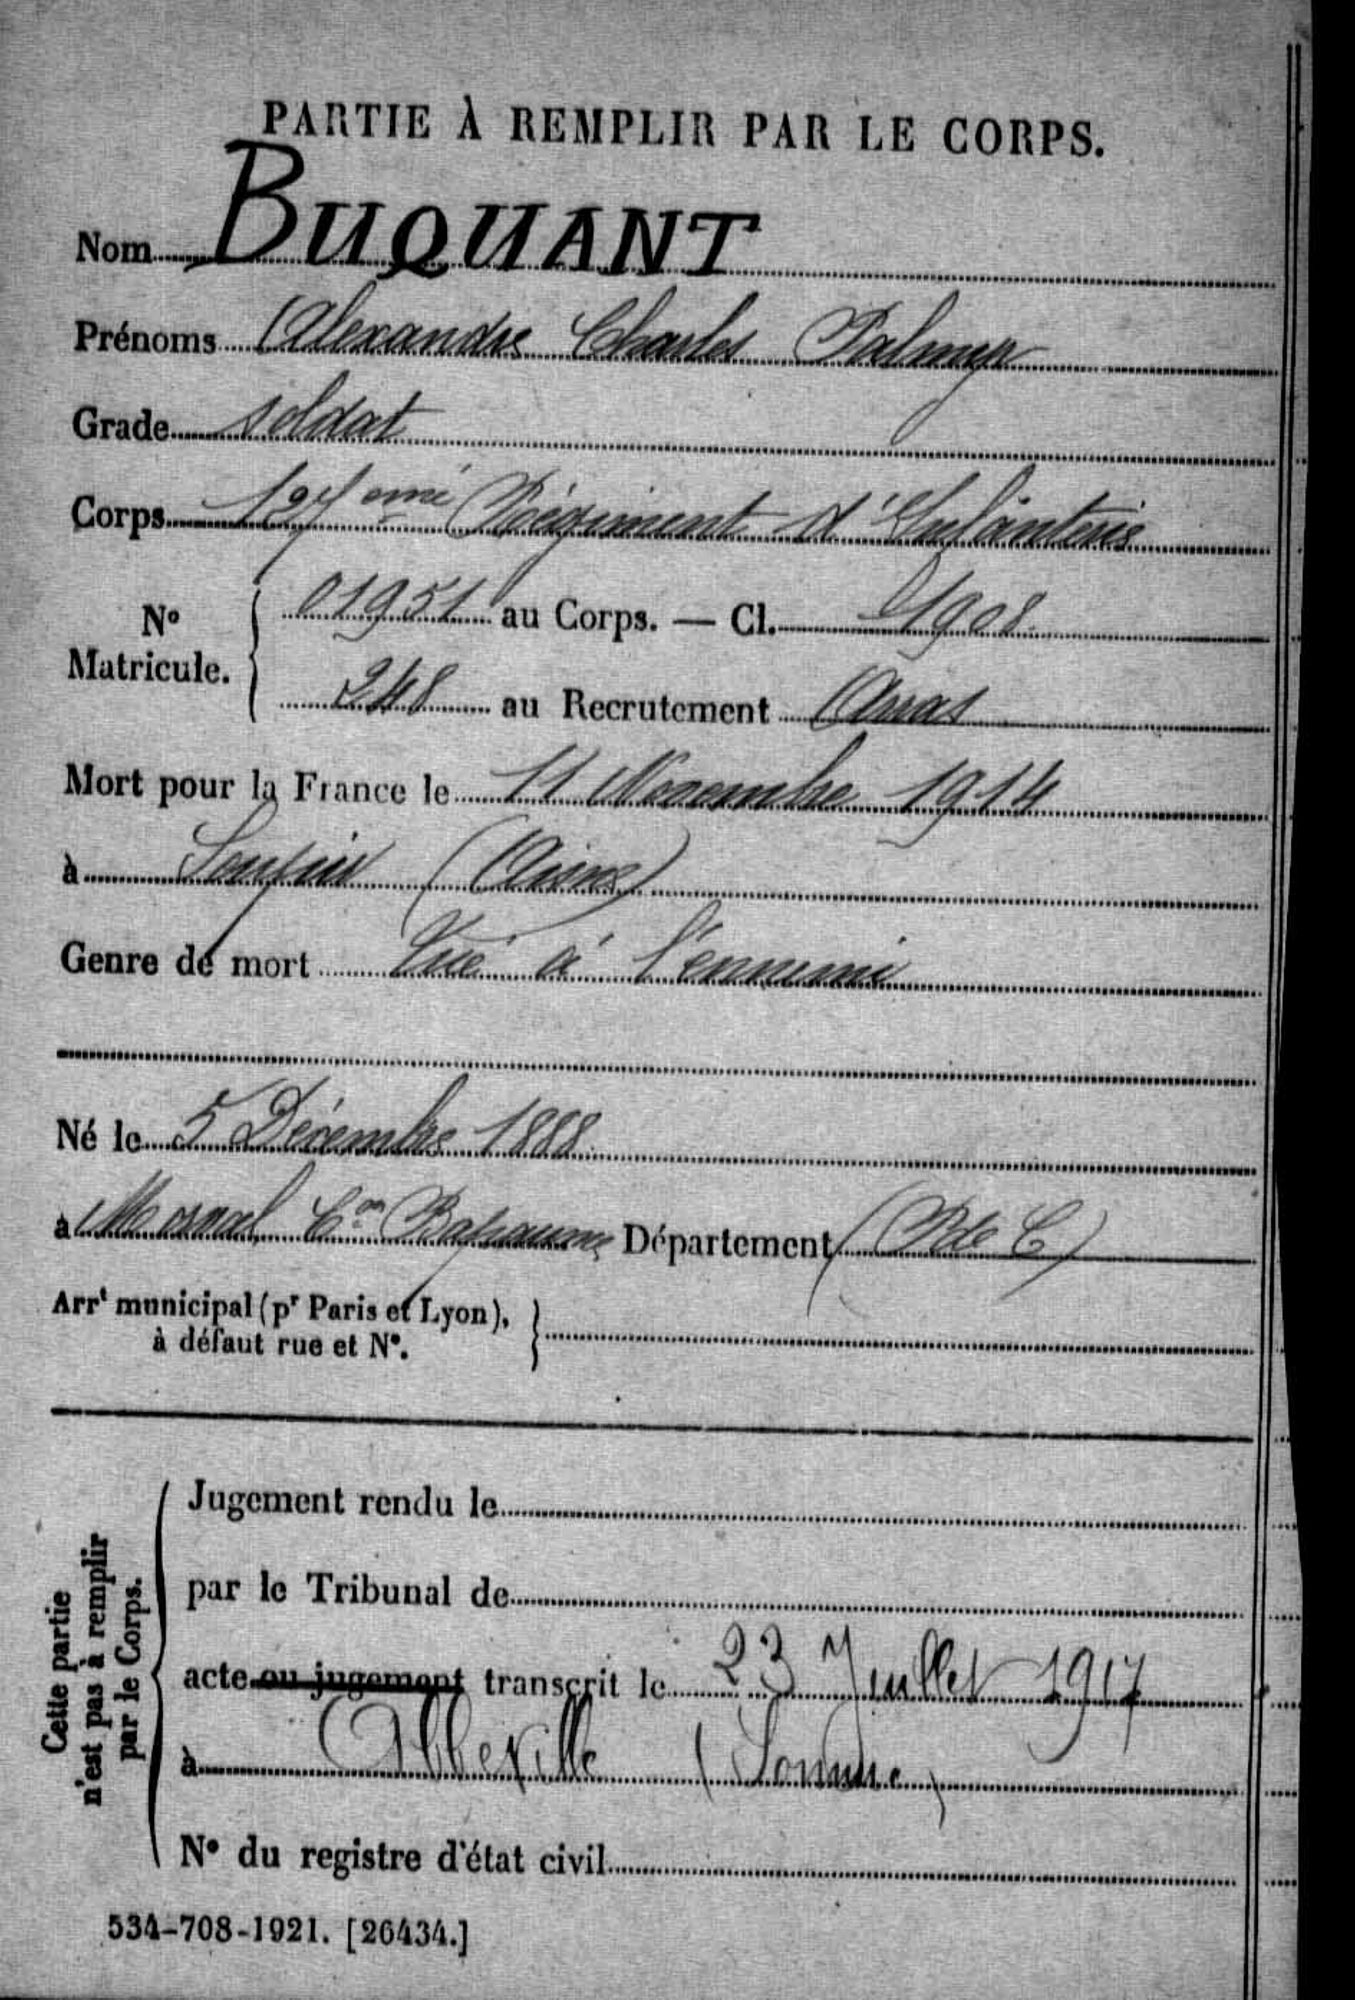 PARTIE À REMPLIR PAR LE CORPS.
Nom BUQUANT
Prénoms Alexandre Charles Palmyr
Grade soldat
Corps 127eme Régiment d'Infanterie
No Matricule. 01951 au Corps. — Cl. 1908
248 au Recrutement Arras
Mort pour la France le 11 Novembre 1914
à Soupir (Aisne)
Genre de mort Tué à l'ennemi
Né le 5 Décembre 1888
à Morval Con Bapaume Département (P de C)
Arrt municipal (pr Paris et Lyon),
à défaut rue et No.
Cette partie
n'est pas à remplir
par le Corps.
Jugement rendu le
par le Tribunal de
acte ou jugement transcrit le 23 Juillet 1917
à Abbeville (Somme)
No du registre d'état civil
534-708-1921. [26434.]